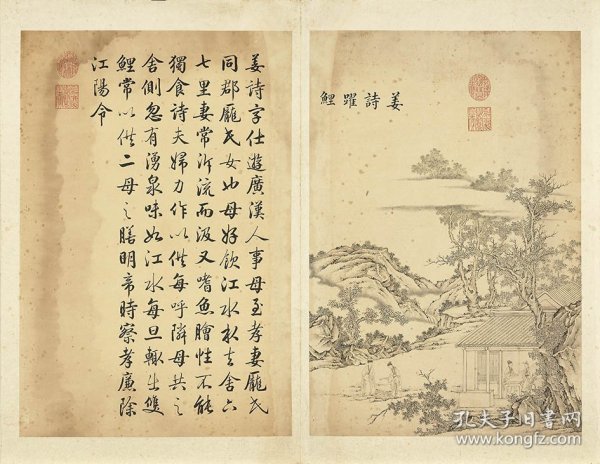 姜詩躍鯉
姜詩字仕遊廣漢人事母至孝妻龐氏
同郡龐氏女也母好飲江水水去舍六
七里妻常泝流而汲又嗜魚膾性不能
獨食詩夫婦力作以供每呼隣母共之
舍側忽有湧泉味如江水每旦輒出雙
鯉常以供二母之膳明帝時察孝廉除
江陽令
孔夫子旧书网
www.kongfz.com